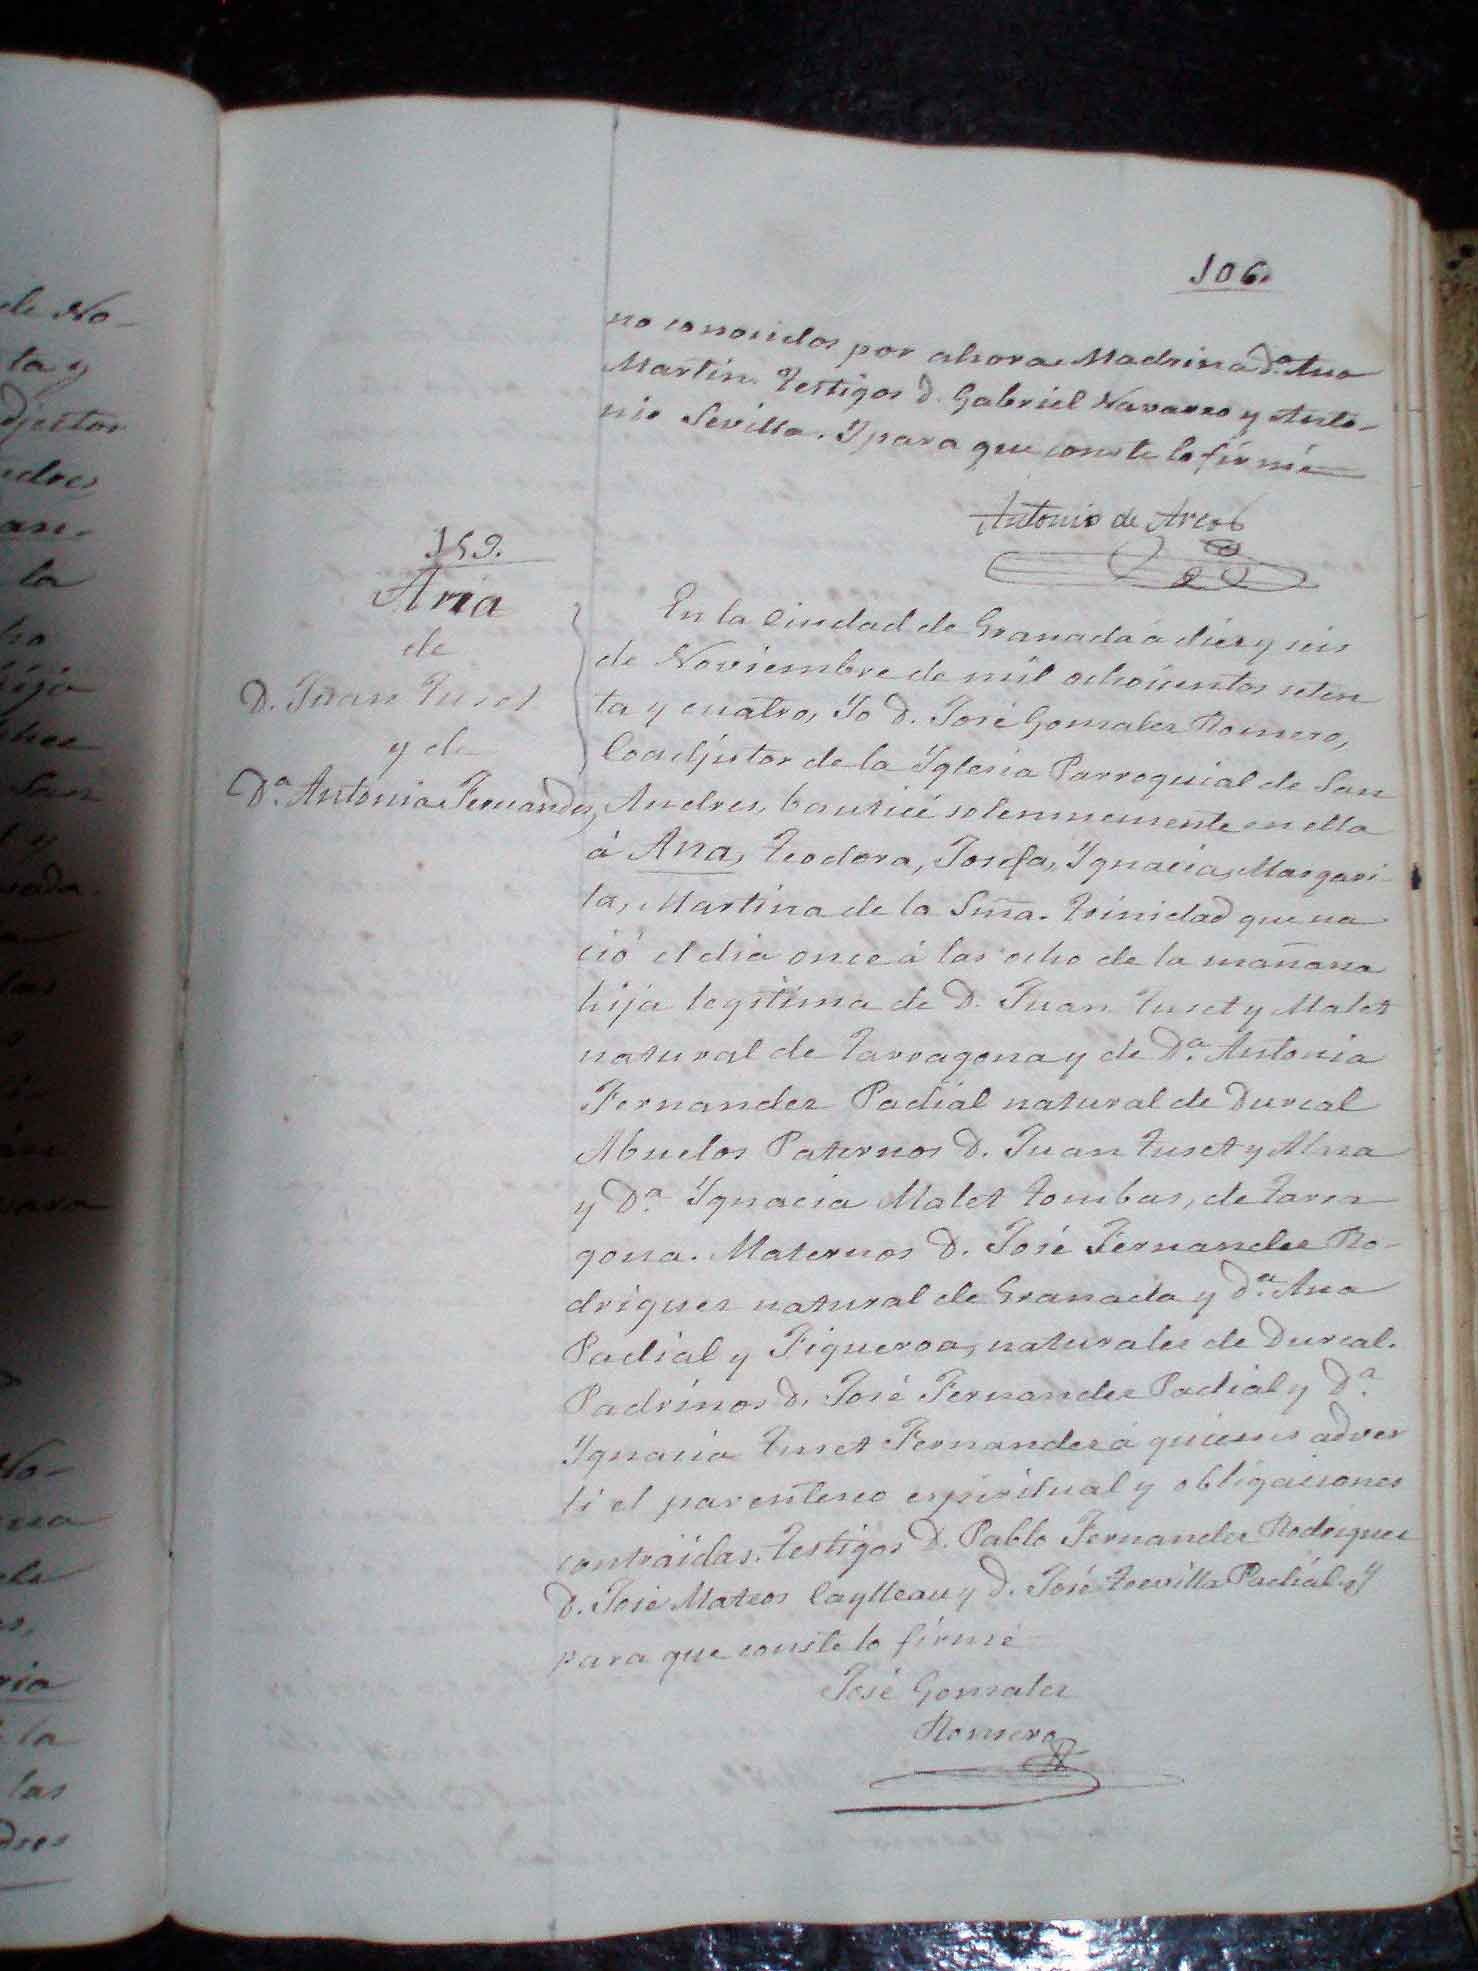 de No-
ta y
106.
no conocidos por ahora. Madrina Dª Ana
Martin. Testigos D. Gabriel Navarro y Anto-
nio Sevilla. Y para que conste lo firmé
Antonio de Arcos
159.
Ana
de
D. Juan Tuset
y de
Dª Antonia Fernandez
En la Ciudad de Granada á diez y seis
de Noviembre de mil ochocientos seten
ta y cuatro, Yo D. José Gonzalez Romero,
Coadjutor de la Yglesia Parroquial de San
Andres, bauticé solemnemente en ella
á Ana, Teodora, Josefa, Ygnacia, Margari-
ta, Martina de la Sma. Trinidad que na
ció el dia once á las ocho de la mañana
hija legitima de D. Juan Tuset y Malet
natural de Tarragona y de Dª Antonia
Fernandez Padial natural de Durcal
Abuelos Paternos D. Juan Tuset y
y Dª Ygnacia Malet Tombas, de Tarra
gona. Maternos D. José Fernandez Ro-
driguez natural de Granada y Dª Ana
Padial y Figueroa, naturales de Durcal.
Padrinos D. José Fernandez Padial y Dª
Ygnacia Tuset Fernandez á quienes adver
ti el parentesco espiritual y obligaciones
contraidas. Testigos D. Pablo Fernandez Rodriguez
D. José Mateos y D. José Padial. Y
para que conste lo firmé
José Gonzalez
Romero